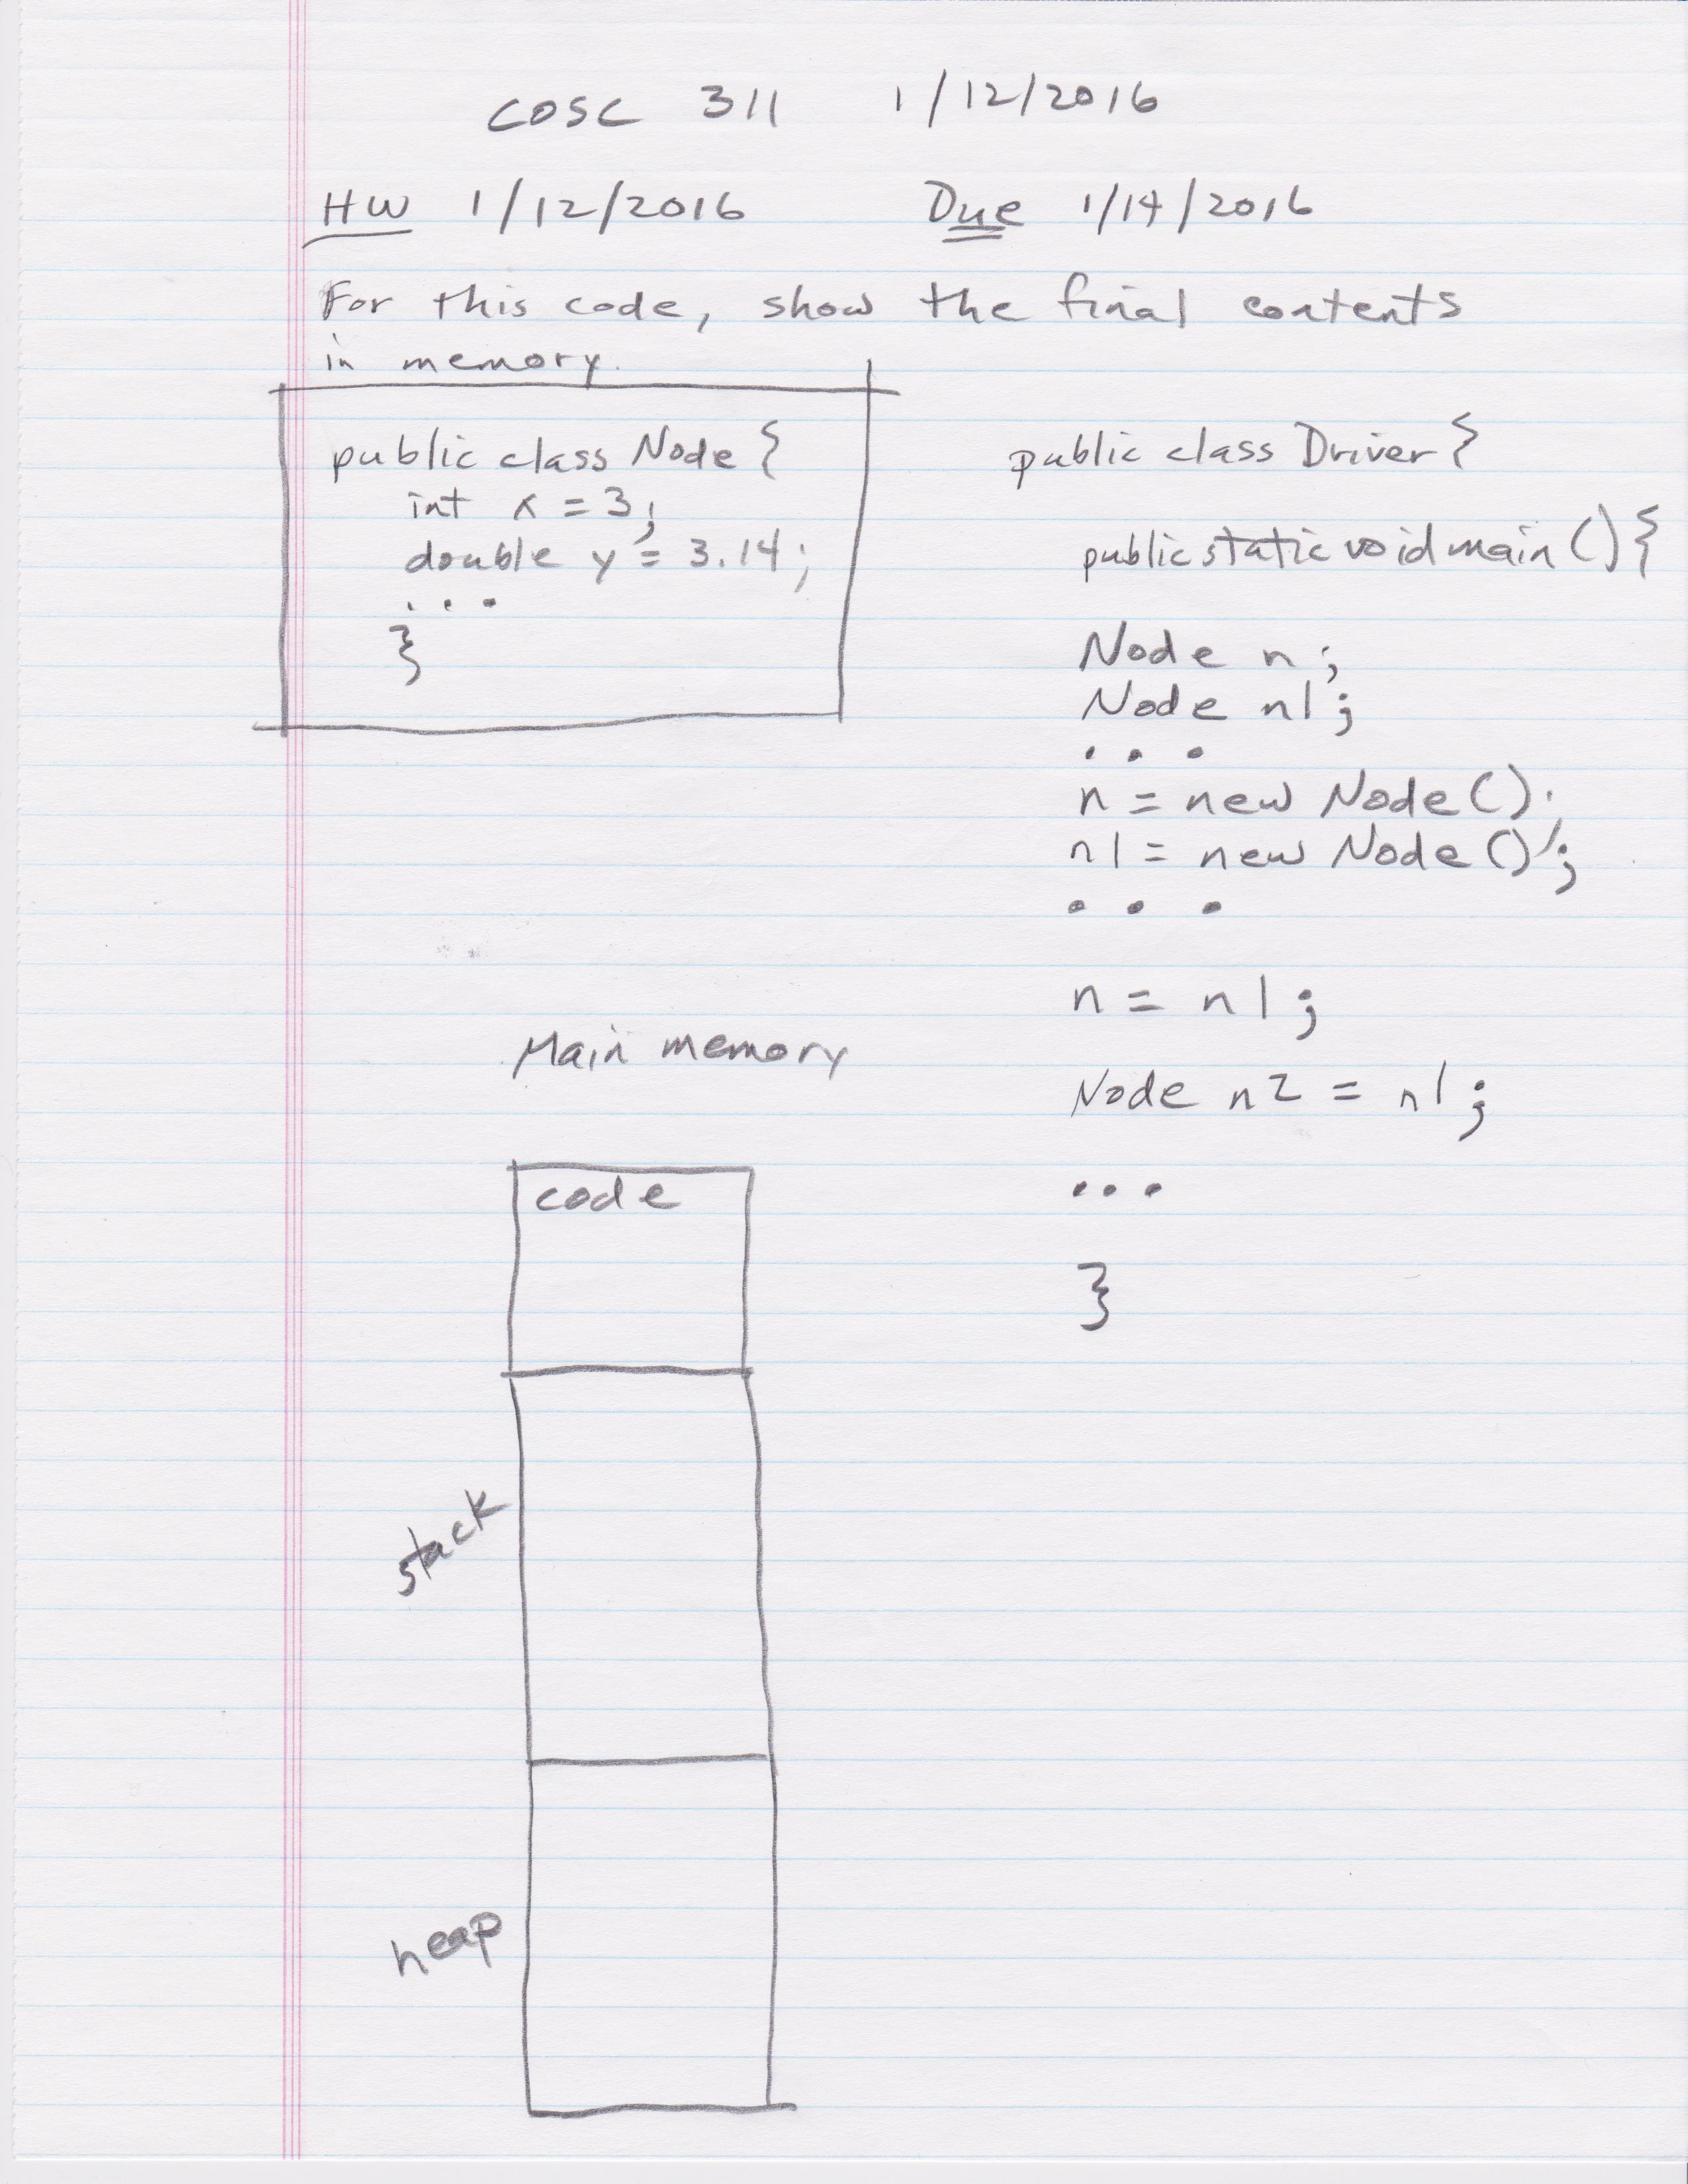 COSC 311 1/12/2016
HW 1/12/2016 Due 1/14/2016
For this code, show the final contents
in memory.
public class Node {
int x = 3;
double y = 3.14;
...
}
public class Driver {
public static void main () {
Node n;
Node n1;
...
n = new Node();
n1 = new Node();
...
n = n1;
Node n2 = n1;
...
}
Main memory
code
stack
heap